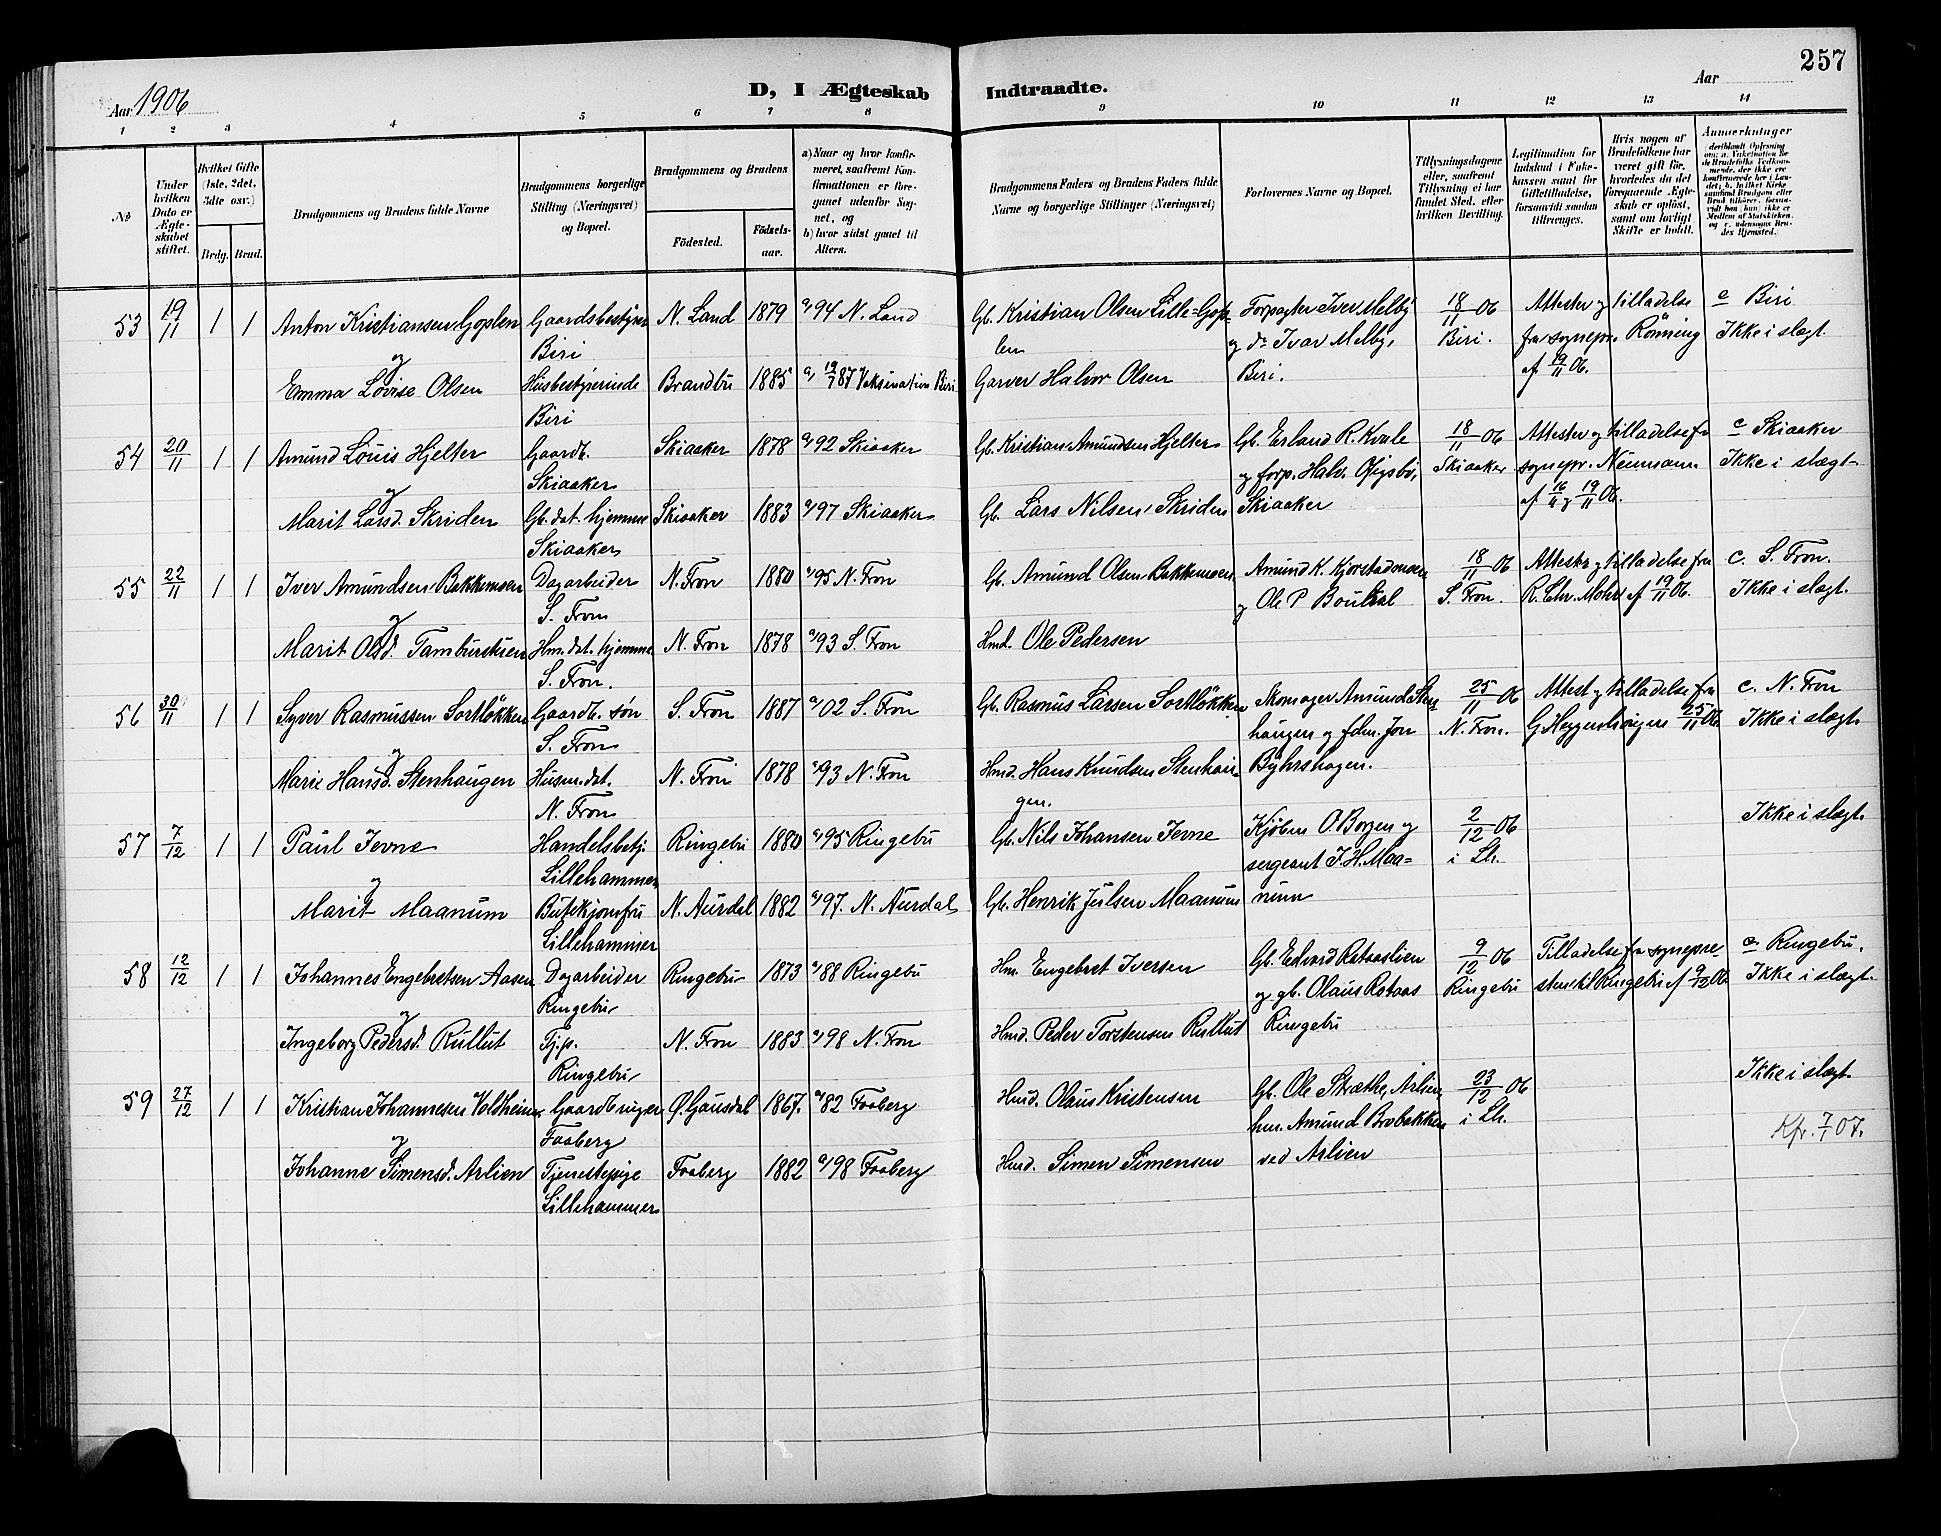 257
Aar 1906
D, I Ægteskab Indtraadte.
Aar
1 2 3 4 5 6 7 8 9 10 11 12 13 14
No
Under hvilken Dato er Ægteskabet stiftet.
Hvilket Gifte (1ste, 2det, 3die osv.)
Brdg. Brud.
Brudgommens og Brudens fulde Navne
Brudgommens borgerlige Stilling (Næringsvei) og Bopæl.
Brudgommens og Brudens
Födested. Födselsaar.
a) Naar og hvor konfirmeret, saafremt Konfirmationen er foregaaet udenfor Sognet, og
b) hvor sidst gaaet til Alters.
Brudgommens Faders og Brudens Faders fulde Navne og borgerlige Stillinger (Næringsvei)
Forlovernes Navne og Bopæl.
Tillysningsdagene eller, saafremt Tillysning ei har fundet Sted, efter hvilken Bevilling.
Legitimation for Indskud i Enkekassen samt for Giftetilladelse, forsaavidt saadan tiltrænges.
Hvis nogen af Brudefolkene har været gift för, hvorledes da det foregaaende Ægteskab er oplöst, samt om lovligt Skifte er holdt.
Anmærkninger
53 19/11 1 1 Anton Kristiansen Goplen Gaardsbestyrer N. Land 1879 a) 94 N. Land Gb. Kristian Olsen Lille-Gop- Forpagter Iver Melby 18/11 06 Attester og tilladelse c Biri
og Biri len og do Ivar Melby, Biri. fra sognepr. Rönning Ikke i slægt
Emma Lovise Olsen Husbestyrerinde Brandbu 1885 a) 19/7 87 Vaksination Biri Garver Halvor Olsen Biri. af 19/11 06.
Biri
54 20/11 1 1 Amund Louis Hjelter Gaardb. Skiaaker 1878 a) 92 Skiaaker Gb. Kristian Amundsen Hjelter Gb. Erland R. Kvale 18/11 06 Attester og tilladelse fr c Skiaaker
og Skiaaker og forp. Halv. Skiaaker sognepr. Neumann Ikke i slægt
Marit Larsd. Skriden Gb. dat. hjemme Skiaaker 1883 a) 97 Skiaaker Gb. Lars Nilsen Skriden Skiaaker af 16/11 og 19/11 06.
Skiaaker
55 22/11 1 1 Iver Amundsen Bakkemoen Dagarbeider N. Fron 1880 a) 95 N. Fron Gb. Amund Olsen Bakkemoen Amund K. Kjorstadmoen 18/11 06 Attester og tilladelse fra c. S. Fron.
og S. Fron og Ole P S. Fron. R. Chr. Mohr af 19/11 06. Ikke i slægt.
Marit Olsd. Hm. dat. hjemme N. Fron 1878 a) 93 S. Fron Hmd. Ole Pedersen
S. Fron.
56 30/11 1 1 Syver Rasmussen Sortlökken Gaardb. sön S. Fron 1887 a) 02 S. Fron Gb. Rasmus Larsen Sortlökken Skomager Amund Sten- 25/11 06 Attest og tilladelse fra c. N. Fron
og S. Fron haugen og fdm. Jon N. Fron. 25/11 06. Ikke i slægt
Marie Hansd. Stenhaugen Husm. dat. N. Fron 1878 a) 93 N. Fron Hmd. Hans Knudsen Stenhau-
N. Fron gen.
57 7/12 1 1 Paul Jevne Handelsbetj. Ringebu 1880 a) 95 Ringebu Gb. Nils Johansen Jevne Kjöbm O. Borgen og 2/12 06 Ikke i slægt
og Lillehammer sergeant J. H. Maa- i Lh.
Marit Maanum Butikjomfru N. Aurdal 1882 a) 97. N. Aurdal Gb. Henrik Julsen Maanum num
Lillehammer
58 12/12 1 1 Johannes Engebretsen Aasen Dagarbeider Ringebu 1873 a) 88 Ringebu Hm. Engebret Iversen Gb. Edvard 9/12 06 Tilladelse fra sognepre- c. Ringebu.
og Ringebu og gb. Olaus Ringebu sten til Ringebu af 9/12 06 Ikke i slægt.
Ingeborg Pedersd. Rullut Tj.p. N. Fron 1883 a) 98 N. Fron Hmd. Peder Torstensen Rullut Ringebu
Ringebu
59 27/12 1 1 Kristian Johannesen Voldheim Gaardbruger Ö. Gausdal 1867. a) 82 Faaberg Hmd. Olaus Kristensen Gb. Ole Strætke, Arlien 23/12 06 Ikke i slægt
og Faaberg hm. Amund Brobakken i Lh. Kfr. 7/1 07.
Johanne Simensd. Arlien Tjenestepige Faaberg 1882 a) 98 Faaberg Hmd. Simen Simensen ved Arlien
Lillehammer